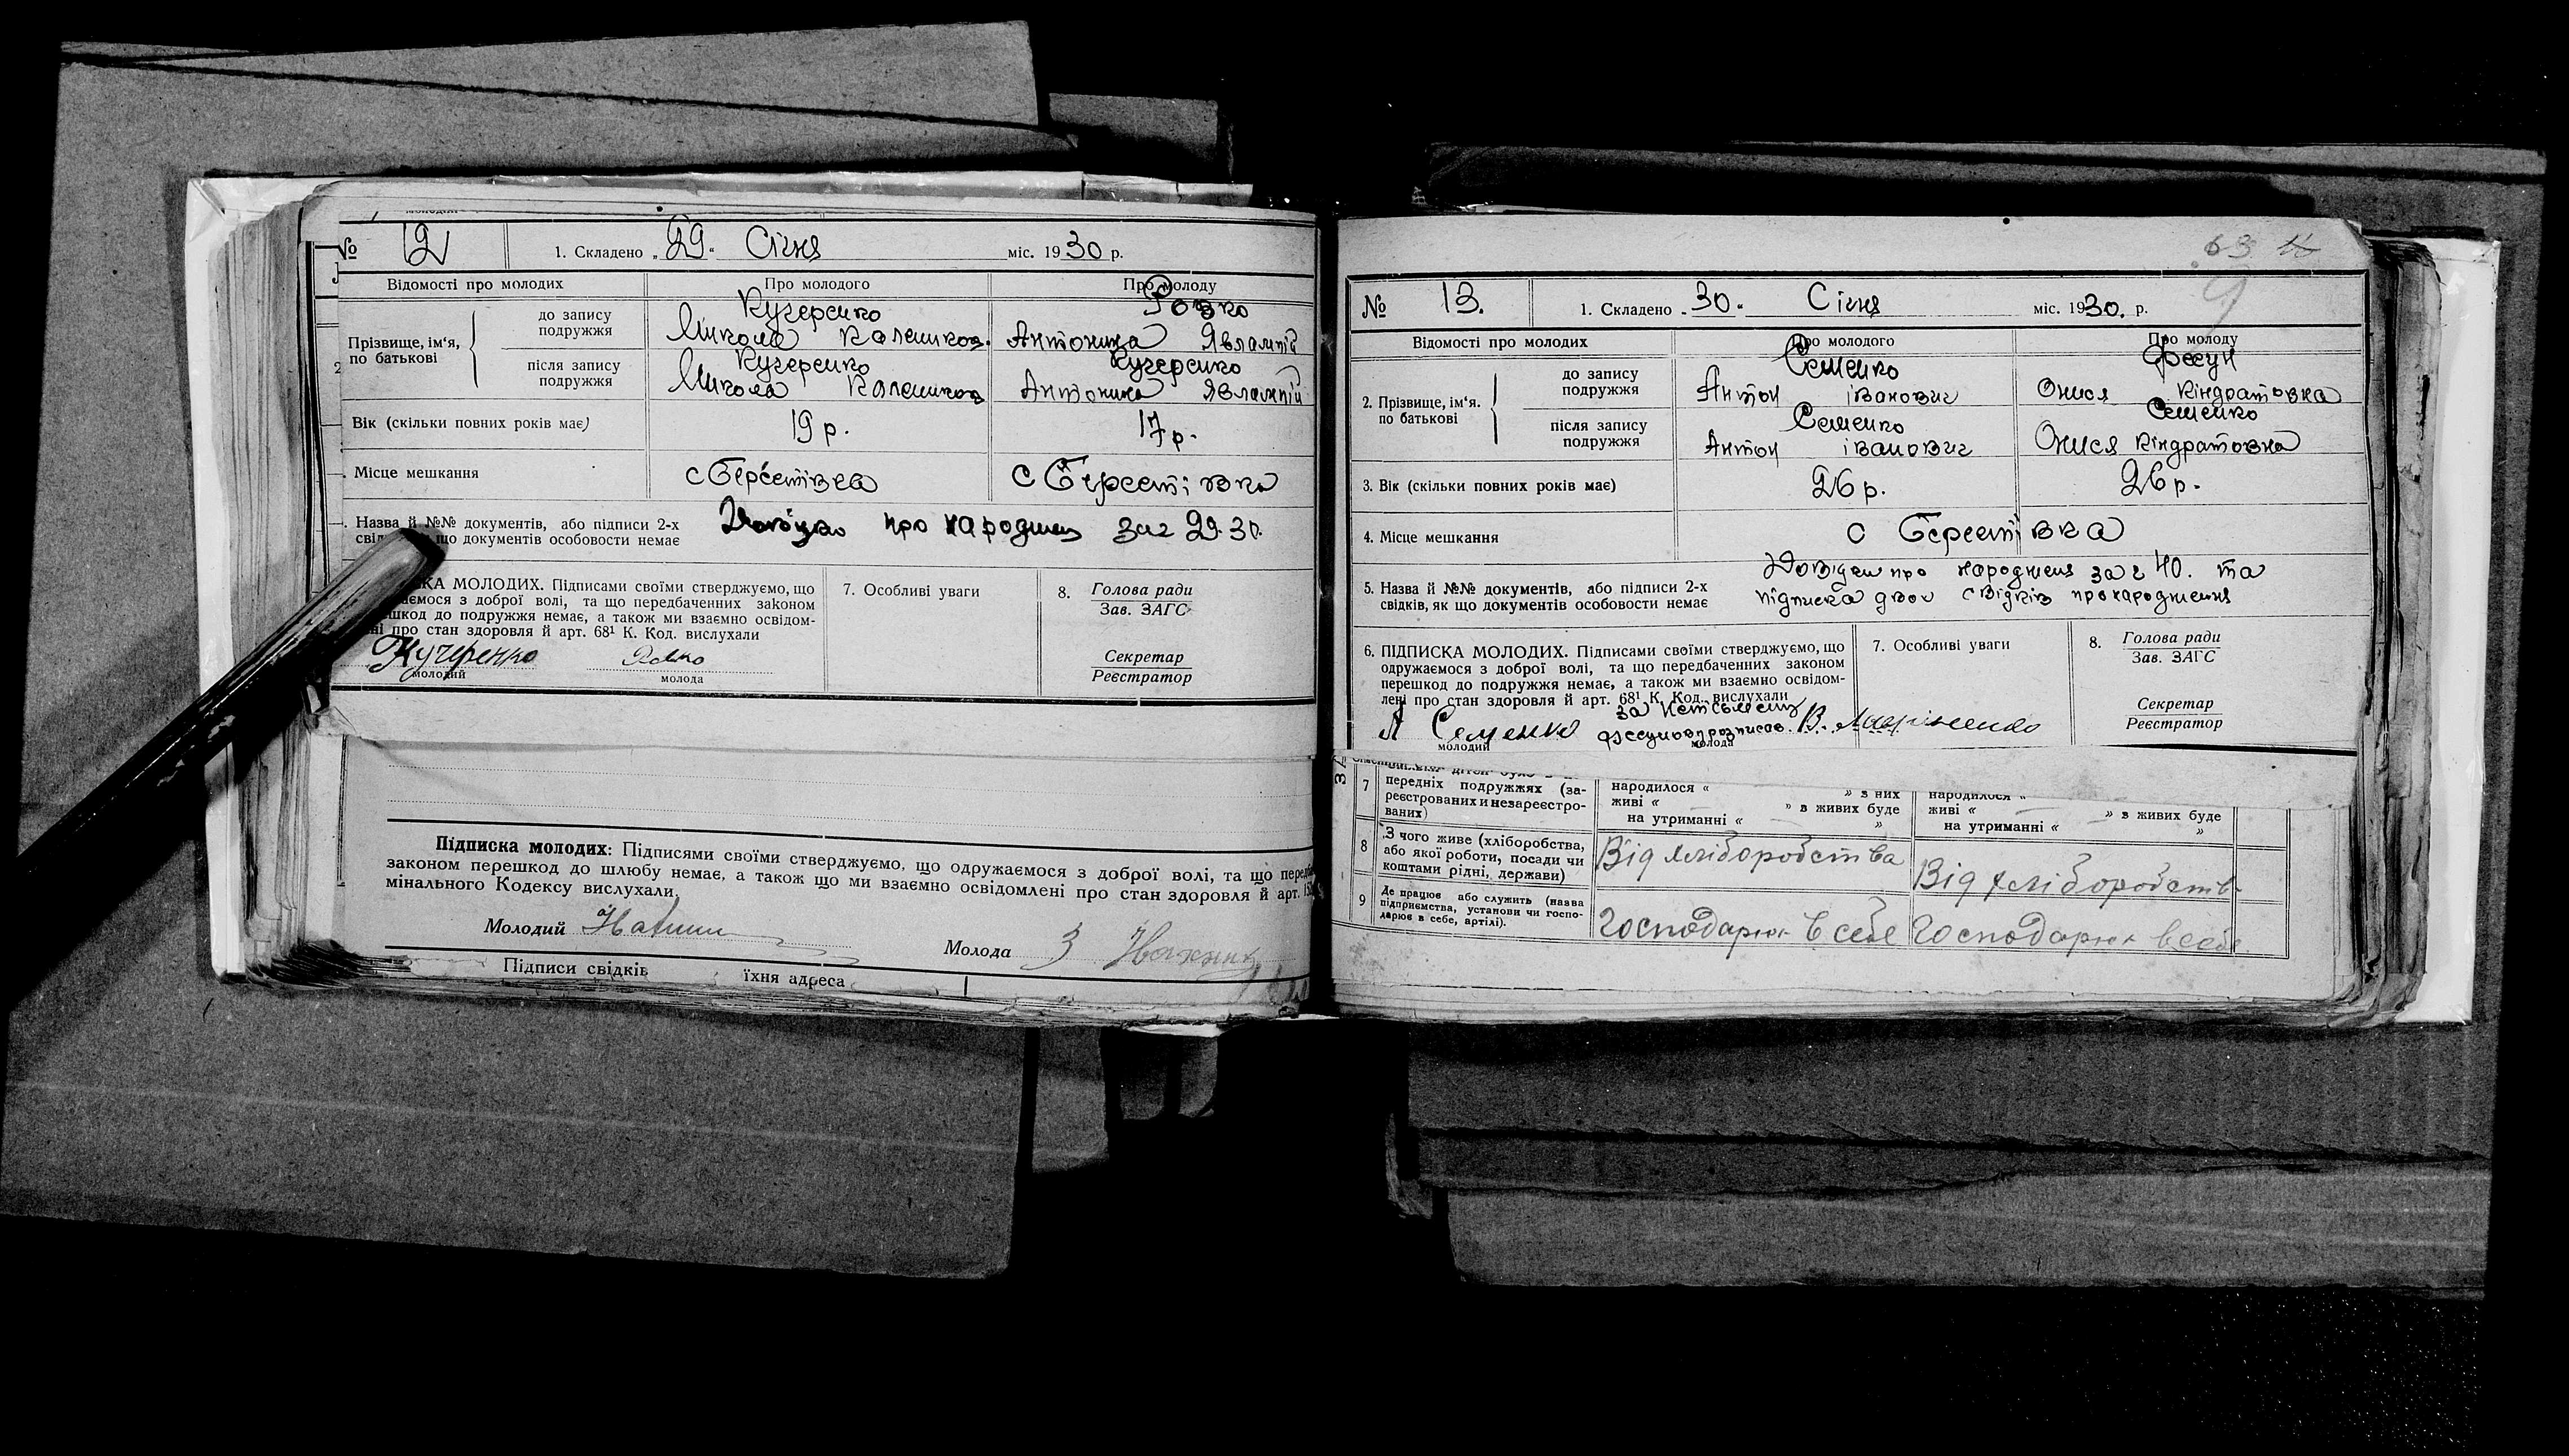 № 12 1. Складено „29“ Січня міс. 1930 р.
Відомості про молодих Про молодого Про молоду
Прізвище, ім‘я, по батькові
до запису подружжя
Кучеренко
Микола
Ровко
Антонина Явлампій
після запису подружжя
Кучеренко
Микола
Кучеренко
Антонина Явлампій
Вік (скільки повних років має) 19 р. 17 р.
Місце мешкання с Берестівка с Берестівка
Назва й №№ документів, або підписи 2-х
що документів особовости немає
про народжен за г 29-30.
КА МОЛОДИХ. Підписами своїми стверджуємо, що
ємося з доброї волі, та що передбаченних законом
шкод до подружжя немає, а також ми взаємно освідом-
ні про стан здоровля й арт. 68¹ К. Код. вислухали
Кучеренко Ровко
молодий молода
7. Особливі уваги
8. Голова ради
Зав. ЗАГС
Секретар
Реєстратор
Підписка молодих: Підписями своїми стверджуємо, що одружаємося з доброї волі, та що перед
законом перешкод до шлюбу немає, а також що ми взаємно освідомлені про стан здоровля й арт. 15
мінального Кодексу вислухали.
Молодий
Молода З
Підписи свідків їхня адреса
63
9
№ 13. 1. Складено „30“ Січня міс. 1930. р.
Відомості про молодих Про молодого Про молоду
2. Прізвище, ім‘я. по батькові
до запису подружжя
Семенко
Антон іванович
Фесун
Онися Кіндратовна
після запису подружжя
Семенко
Антон іванович
Семенко
Онися Кіндратовна
3. Вік (скільки повних років має) 26 р. 26 р.
4. Місце мешкання с Берестівка
5. Назва й №№ документів, або підписи 2-х
свідків, як що документів особовости немає
Довідки про народженя за г 40. та
підписка двох свідків про народження
6. ПІДПИСКА МОЛОДИХ. Підписами своїми стверджуємо, що
одружаємося з доброї волі, та що передбаченних законом
перешкод до подружжя немає, а також ми взаємно освідом-
лені про стан здоровля й арт. 68¹ К. Код. вислухали
А Семенко
за
молодий молода
7. Особливі уваги
8. Голова ради
Зав. ЗАГС
Секретар
Реєстратор
7 передніх подружжях (за-
реєстрованих и незареєстро-
ваних)
народилося “ » з них
живі “ » в живих буде
на утриманні “ »
народилося “
живі “ » з живих буде
на утриманні “ »
8 З чого живе (хліборобства,
або якої роботи, посади чи
коштами рідні, держави)
Від хлібородства
Від хлібородств
9 Де працює або служить (назва
підприємства, установи чи госпо-
дарює в себе, артілі).
Господарює в себе
Господарює в себе